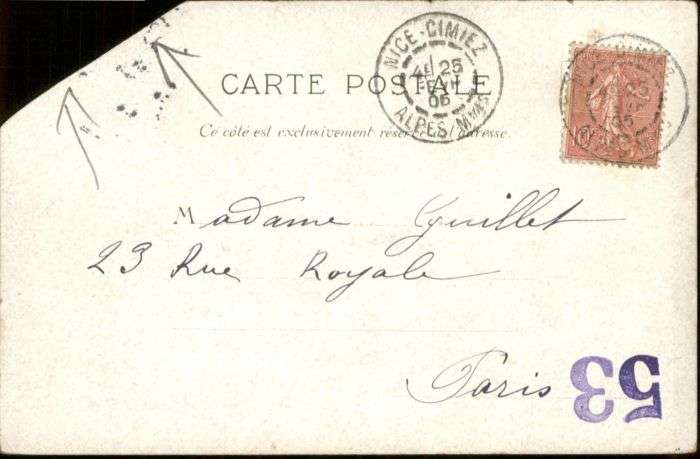 NICE-CIMIEZ
25
06
ALPES MMES
CARTE POSTALE
Ce côté est exclusivement réservé à l'adresse.
Madame Guillet
23 Rue Royale
Paris
53